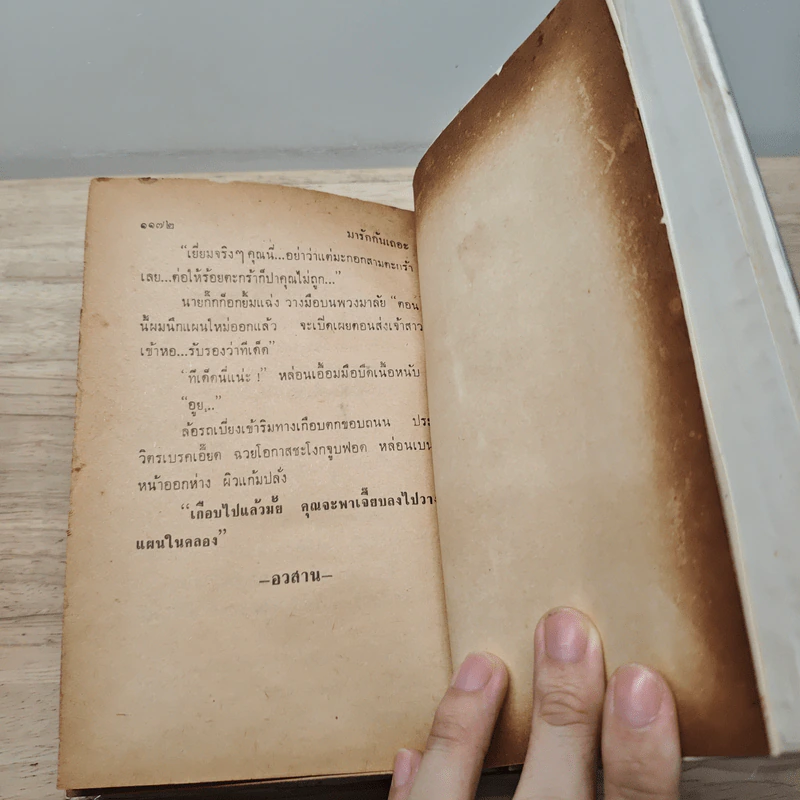 ๑๑๗๒
มารักกันเถอะ
“เยี่ยมจริงๆ คุณนี่...อย่าว่าแต่มะกอกสามตะกร้า
เลย...ต่อให้ร้อยตะกร้าก็ปาคุณไม่ถูก...”
นายกิ๊กก๊อกยิ้มแฉ่ง วางมือบนพวงมาลัย “ตอน
นี้ผมนึกแผนใหม่ออกแล้ว จะเปิดเผยตอนส่งเจ้าสาว
เข้าหอ...รับรองว่าทีเด็ด”
“ทีเด็ดนี่แน่ะ !” หล่อนเอื้อมมือบิดเนื้อหนับ
“อูย...”
ล้อรถเบี่ยงเข้าริมทางเกือบตกขอบถนน ประ
วิตรเบรคเอี๊ยด ฉวยโอกาสชะโงกจูบฟอด หล่อนเบน
หน้าออกห่าง ผิวแก้มปลั่ง
“เกือบไปแล้วมั้ย คุณจะพาเจี๊ยบลงไปวาง
แผนในคลอง”
—อวสาน—